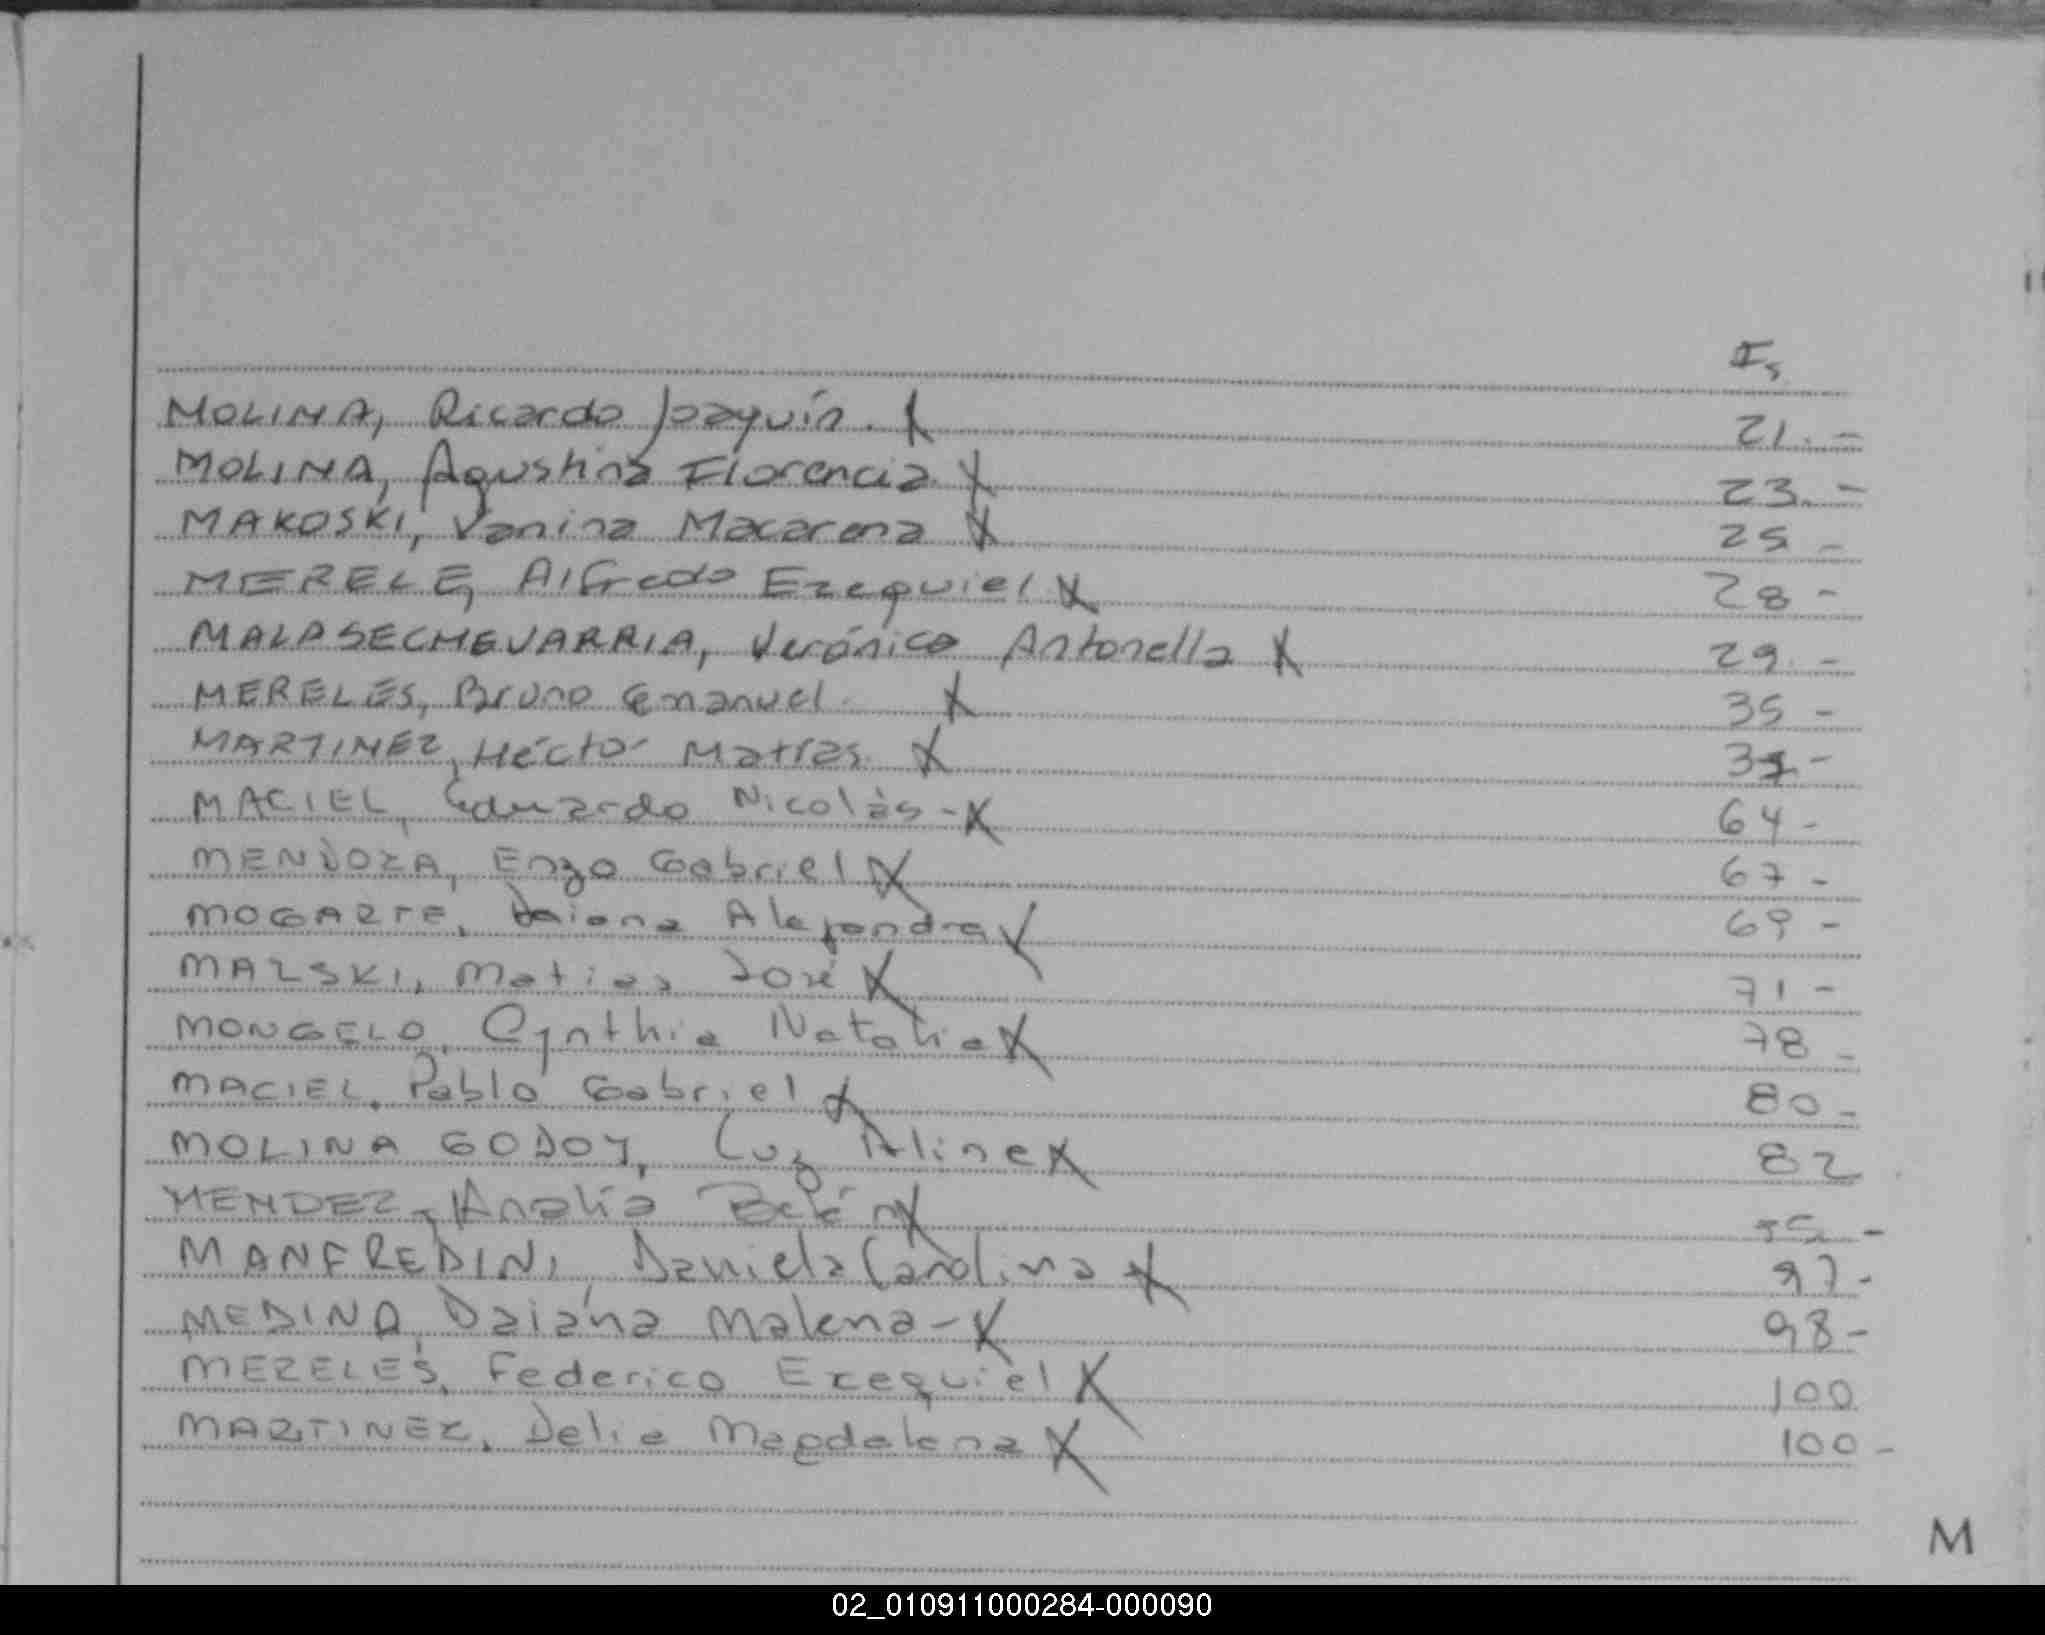 Fs
MOLINA, Ricardo Joaquín. X 21.-
MOLINA, Agustina Florencia X 23.-
MAKOSKI, Vanina Macarena X 25-
MERELE, Alfredo Ezequiel X 28-
MALASECHEVARRIA, Verónica Antonella X 29.-
MERELES, Bruno Emanuel. X 35-
MARTINEZ, Héctor Matías X -
MACIEL, Eduardo Nicolás - X 64-
MENDOZA, Enzo Gabriel X 67-
MOGARTE, Daiana Alejandra X 69-
MALSKI, Matias José X 71-
MONGELO, Cynthia Natalia X 78-
MACIEL, Pablo Gabriel X 80-
MOLINA GODOY, Luz Aline X 82
MENDEZ, Analía Belén X -
MANFREDINI, Daniela Carolina X 97-
MEDINA, Daiana Malena - X 98-
MERELES, Federico Ezequiel X 100
MARTINEZ, Delia Magdalena X 100-
M
02_010911000284-000090